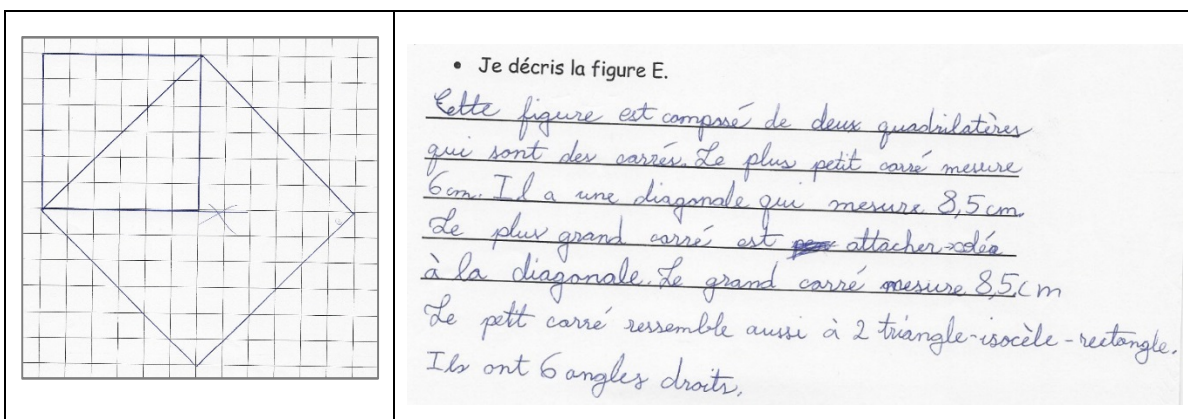 • Je décris la figure E.
Cette figure est composé de deux quadrilatères
qui sont des carrés. Le plus petit carré mesure
6cm. Il a une diagonale qui mesure 8,5 cm.
Le plus grand carré est attacher
à la diagonale. Le grand carré mesure 8,5cm
Le petit carré ressemble aussi à 2 triangle-isocèle-rectangle.
Ils ont 6 angles droits.